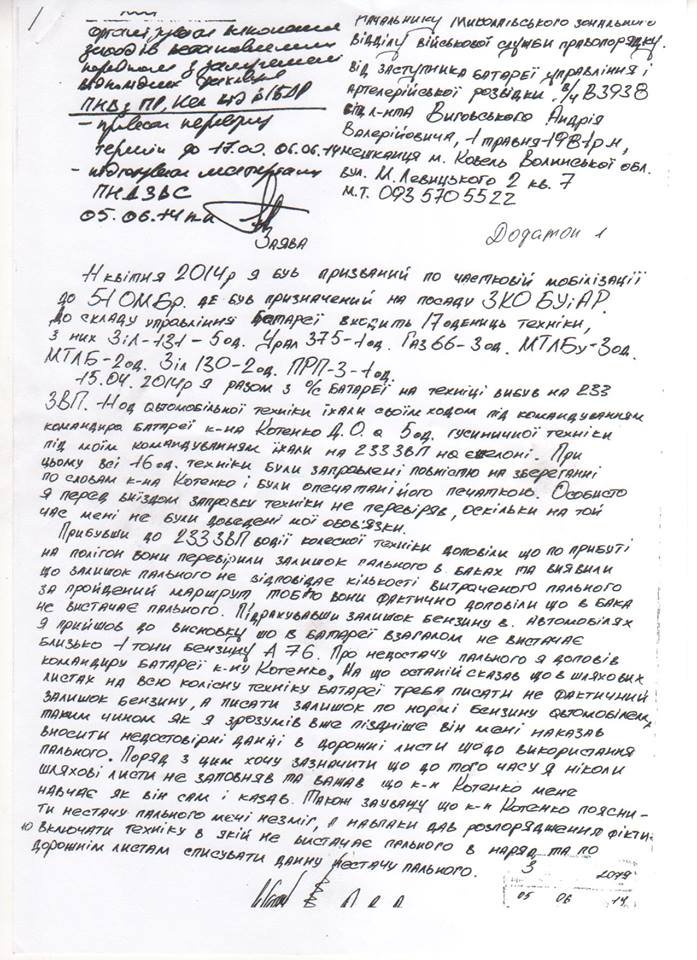 1
організувати виконання
заходів встановленим
порядком з залученням
відповідних фахівців
ПНВз ПР,
- провести перевірку
термін до 17.00 06.06.14
- підготувати матеріали
ПНДЗВС
05.06.14
Начальнику Миколаївського зонального
відділу військової служби правопорядку.
від заступника батареї управління і
артелерійської розвідки. в/ч В3938
від л-нта Виговського Андрія
Валерійовича, 1 травня 1981р.н,
мешканця м. Ковель Волинської обл.
вул. М. Левицького 2 кв. 7
м.т. 093 570 55 22
Заява
Додаток 1
11 квітня 2014р я був призваний по частковій мобілізації
до 51 ОМБр. де був призначений на посаду ЗКО БУіАР.
До складу управління батареї входить 17 одениць техніки,
з них Зіл-131-5од. Урал 375-1од. Газ 66-3од. МТЛБу-3од.
МТЛБ-2од. Зіл 130-2од. ПРП-3-1од.
15.04.2014р я разом з о/с батареї на техніці вибув на 233
ЗВП. 11од автомобільної техніки їхали своїм ходом під командуванням
командира батареї к-на Котенко Д.О. а 5од. гусиничної техніки
під моїм командуванням їхали на 233 ЗВП на ешелоні. При
цьому всі 16 од. техніки були заправлені повністю на зберганні
по словам к-на Котенко і були опечатані його печаткою. Особисто
я перед виїздом заправку техніки не перевіряв, оскільки на той
час мені не були доведені мої обов'язки.
Прибувши до 233 ЗВП водії колесної техніки доповіли що по прибуті
на полігон вони перевірили залишок пального в баках та виявили
що залишок пального не відповідає кількості витраченого пального
за пройдений маршрут, тобто вони фактично доповіли що в бака
не вистачає пального. Підрахувавши залишок бензину в. автомобілях
я прийшов до висновку що в батареї взагалом не вистачає
близько 1 тони бензину А 76. Про недостачу пального я доповів
командиру батареї к-ну Котенко, на що останій сказав що в шляхових
листах на всю колісну техніку батареї треба писати не фактичний
залишок бензину, а писати залишок по нормі бензину автомобілем,
таким чином як я зрозумів вже пізніше він мені наказав
вносити недостовірні данні в дорожні листи щодо використання
пального. Поряд з цим хочу зазначити що до того часу я ніколи
шляхові листи не заповняв та вважав що к-н Котенко мене
навчає як він сам і казав. Також зауважу що к-н Котенко поясни-
ти нестачу пального мені незміг, а навпаки дав розпорядження фікти
но включати техніку в якій не вистачає пального в наряд та по
дорожнім листам списувати данну нестачу пального.
3 2079
05 06 14